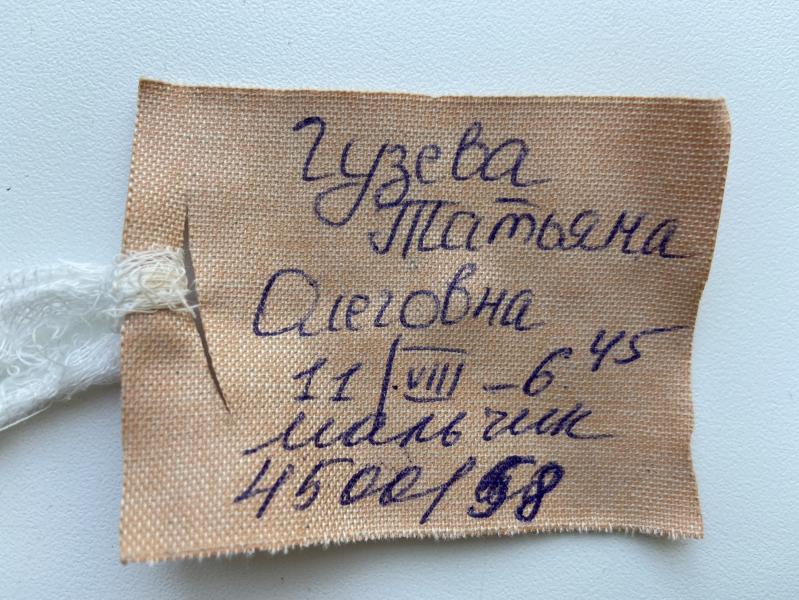 Гузева
Татьяна
Олеговна
11/VIII - 6.45
мальчик
4500/58